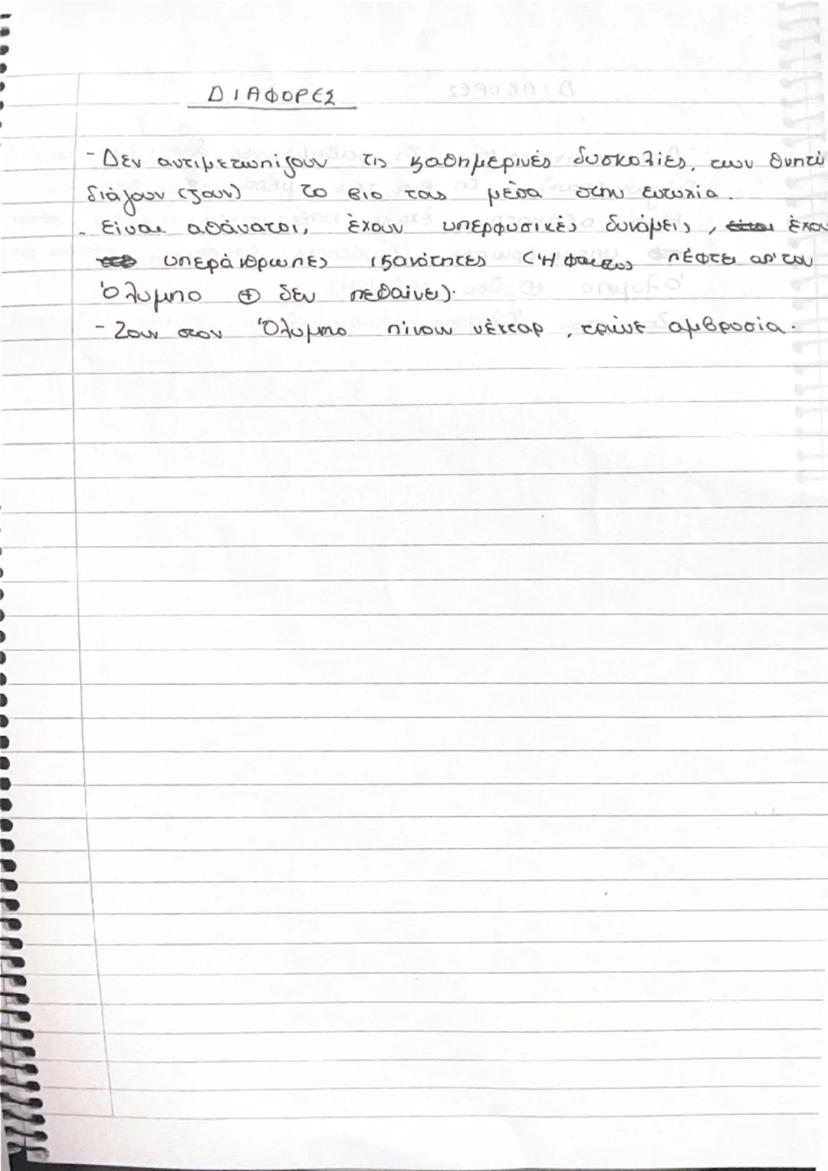 ΔΙΑΦΟΡΕΣ
- Δεν αντιμετωπίζουν τις καθημερινές δυσκολίες, των θνητώ
διάγουν (ζουν) το βιο τους μέσα στην ευτυχία.
- είναι αθάνατοι, έχουν υπερφυσικές δυνάμεις, έχου
υπεράνθρωπες ικανότητες (Ήφαιστος πέφτει απ' τον
Όλυμπο ⊕ δεν πεθαίνει).
- Ζουν στον Όλυμπο πίνουν νέκταρ, τρώνε αμβροσία.